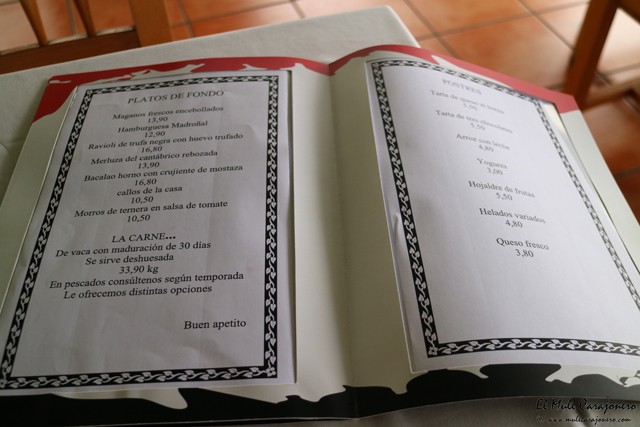 PLATOS DE FONDO
Maganos frescos encebollados
13,90
Hamburguesa Madroñal
12,90
Ravioli de trufa negra con huevo trufado
16,80
Merluza del cantábrico rebozada
13,90
Bacalao horno con crujiente de mostaza
16,80
callos de la casa
10,50
Morros de ternera en salsa de tomate
10,50
LA CARNE...
De vaca con maduración de 30 días
Se sirve deshuesada
33,90 kg
En pescados consúltenos según temporada
Le ofrecemos distintas opciones
Buen apetito
POSTRES
Tarta de queso al horno
5,50
Tarta de tres chocolates
5,50
Arroz con leche
4,80
Yogures
3,00
Hojaldre de frutas
5,50
Helados variados
4,80
Queso fresco
3,80
El Mule Carajonero
www.mulecarajonero.com